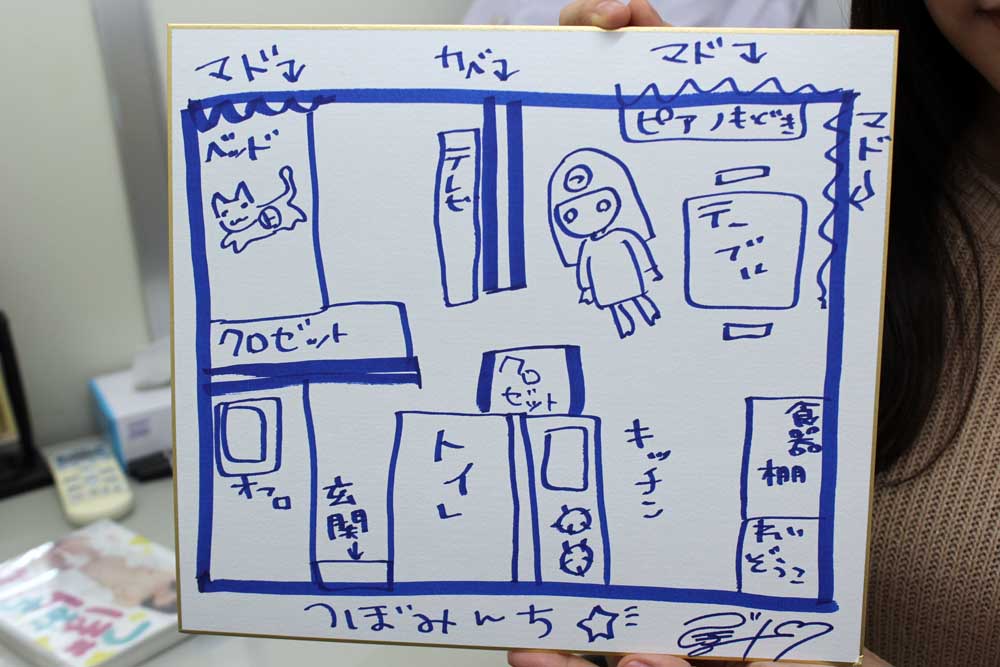 マド
カベ
マド
マド
ベッド
テレビ
ピアノもどき
テーブル
クロゼット
クロ
ゼット
オフロ
玄関
トイレ
キッチン
食器
棚
れい
ぞうこ
つぼみんち